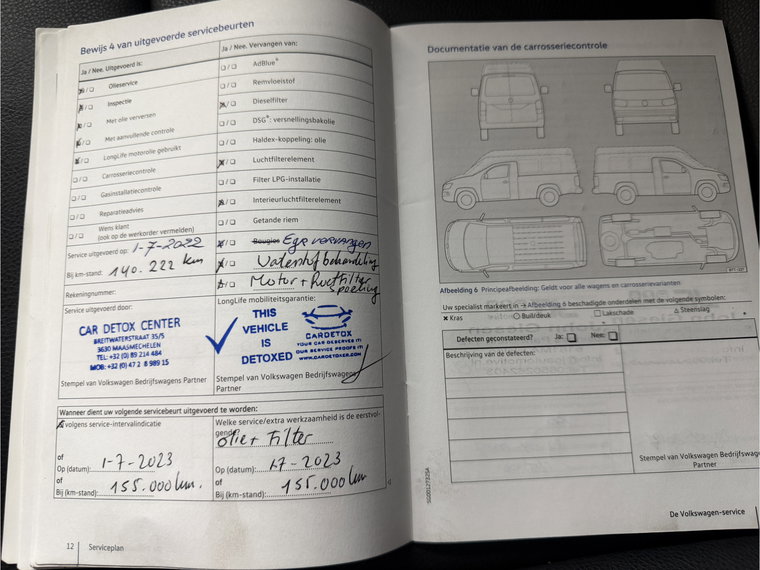 Bewijs 4 van uitgevoerde servicebeurten
Ja / Nee. Uitgevoerd is:
Olieservice
Inspectie
Met olie verversen
Met aanvullende controle
LongLife motorolie gebruikt
Carrosseriecontrole
Gasinstallatiecontrole
Reparatieadvies
Wens klant
(ook op de werkorder vermelden)
Service uitgevoerd op: 1-7-2022
Bij km-stand: 140.222 km
Rekeningnummer:
Service uitgevoerd door:
CAR DETOX CENTER
BREITWATERSTRAAT 35/5
3630 MAASMECHELEN
TEL: +32 (0) 89 214 484
MOB: +32 (0) 47 2 8 989 15
Stempel van Volkswagen Bedrijfswagens Partner
Ja / Nee. Vervangen van:
AdBlue®
Remvloeistof
Dieselfilter
DSG®: versnellingsbakolie
Haldex-koppeling: olie
Luchtfilterelement
Filter LPG-installatie
Interieurluchtfilterelement
Getande riem
Bougies Egr vervangen
Waterstof behandeling
Motor + Roetfilter
spoeling
LongLife mobiliteitsgarantie:
THIS
VEHICLE
IS
DETOXED
CARDETOX
YOUR CAR DESERVES IT!
OUR SERVICE PROOFS IT!
WWW.CARDETOXER.COM
Stempel van Volkswagen Bedrijfswagens
Partner
Wanneer dient uw volgende servicebeurt uitgevoerd te worden:
volgens service-intervalindicatie
of
Op (datum): 1-7-2023
of
Bij (km-stand): 155.000 km.
Welke service/extra werkzaamheid is de eerstvol-
gende
olie + Filter
Op (datum): 1-7-2023
of
Bij (km-stand): 155.000 km.
12 Serviceplan
Documentatie van de carrosseriecontrole
Afbeelding 6 Principeafbeelding: Geldt voor alle wagens en carrosserievarianten
Uw specialist markeert in → Afbeelding 6 beschadigde onderdelen met de volgende symbolen:
× Kras ○ Buil/deuk □ Lakschade △ Steenslag
Defecten geconstateerd? Ja: Nee:
Beschrijving van de defecten:
Stempel van Volkswagen Bedrijfswagens
Partner
De Volkswagen-service